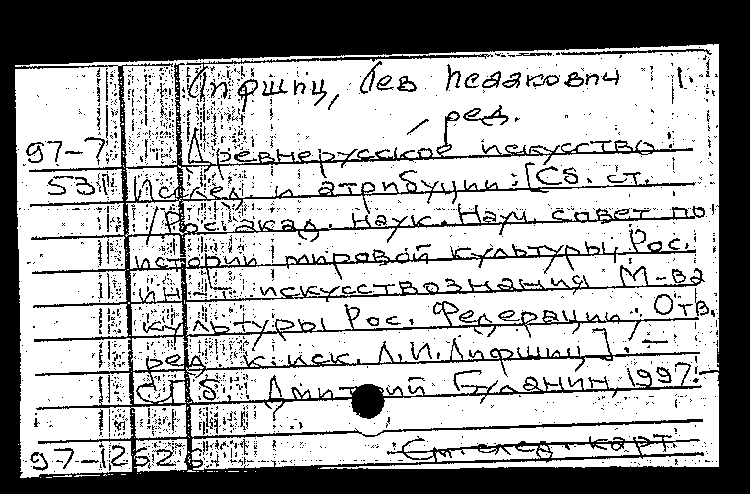 Лифшиц, Лев Исаакович 1.
ред.
97-7 Древнерусское искусство
531 Исслед и атрибуции: [Сб. ст.
/Рос. акад. наук. Науч. совет по
истории мировой культуры, Рос.
ин-т искусствознания М-ва
культуры Рос. Федерации; Отв.
ред к. иск. Л.И.Лифшиц]. –
СПб. Дмитрий Буланин, 1997. –
97-12626 См. след. карт